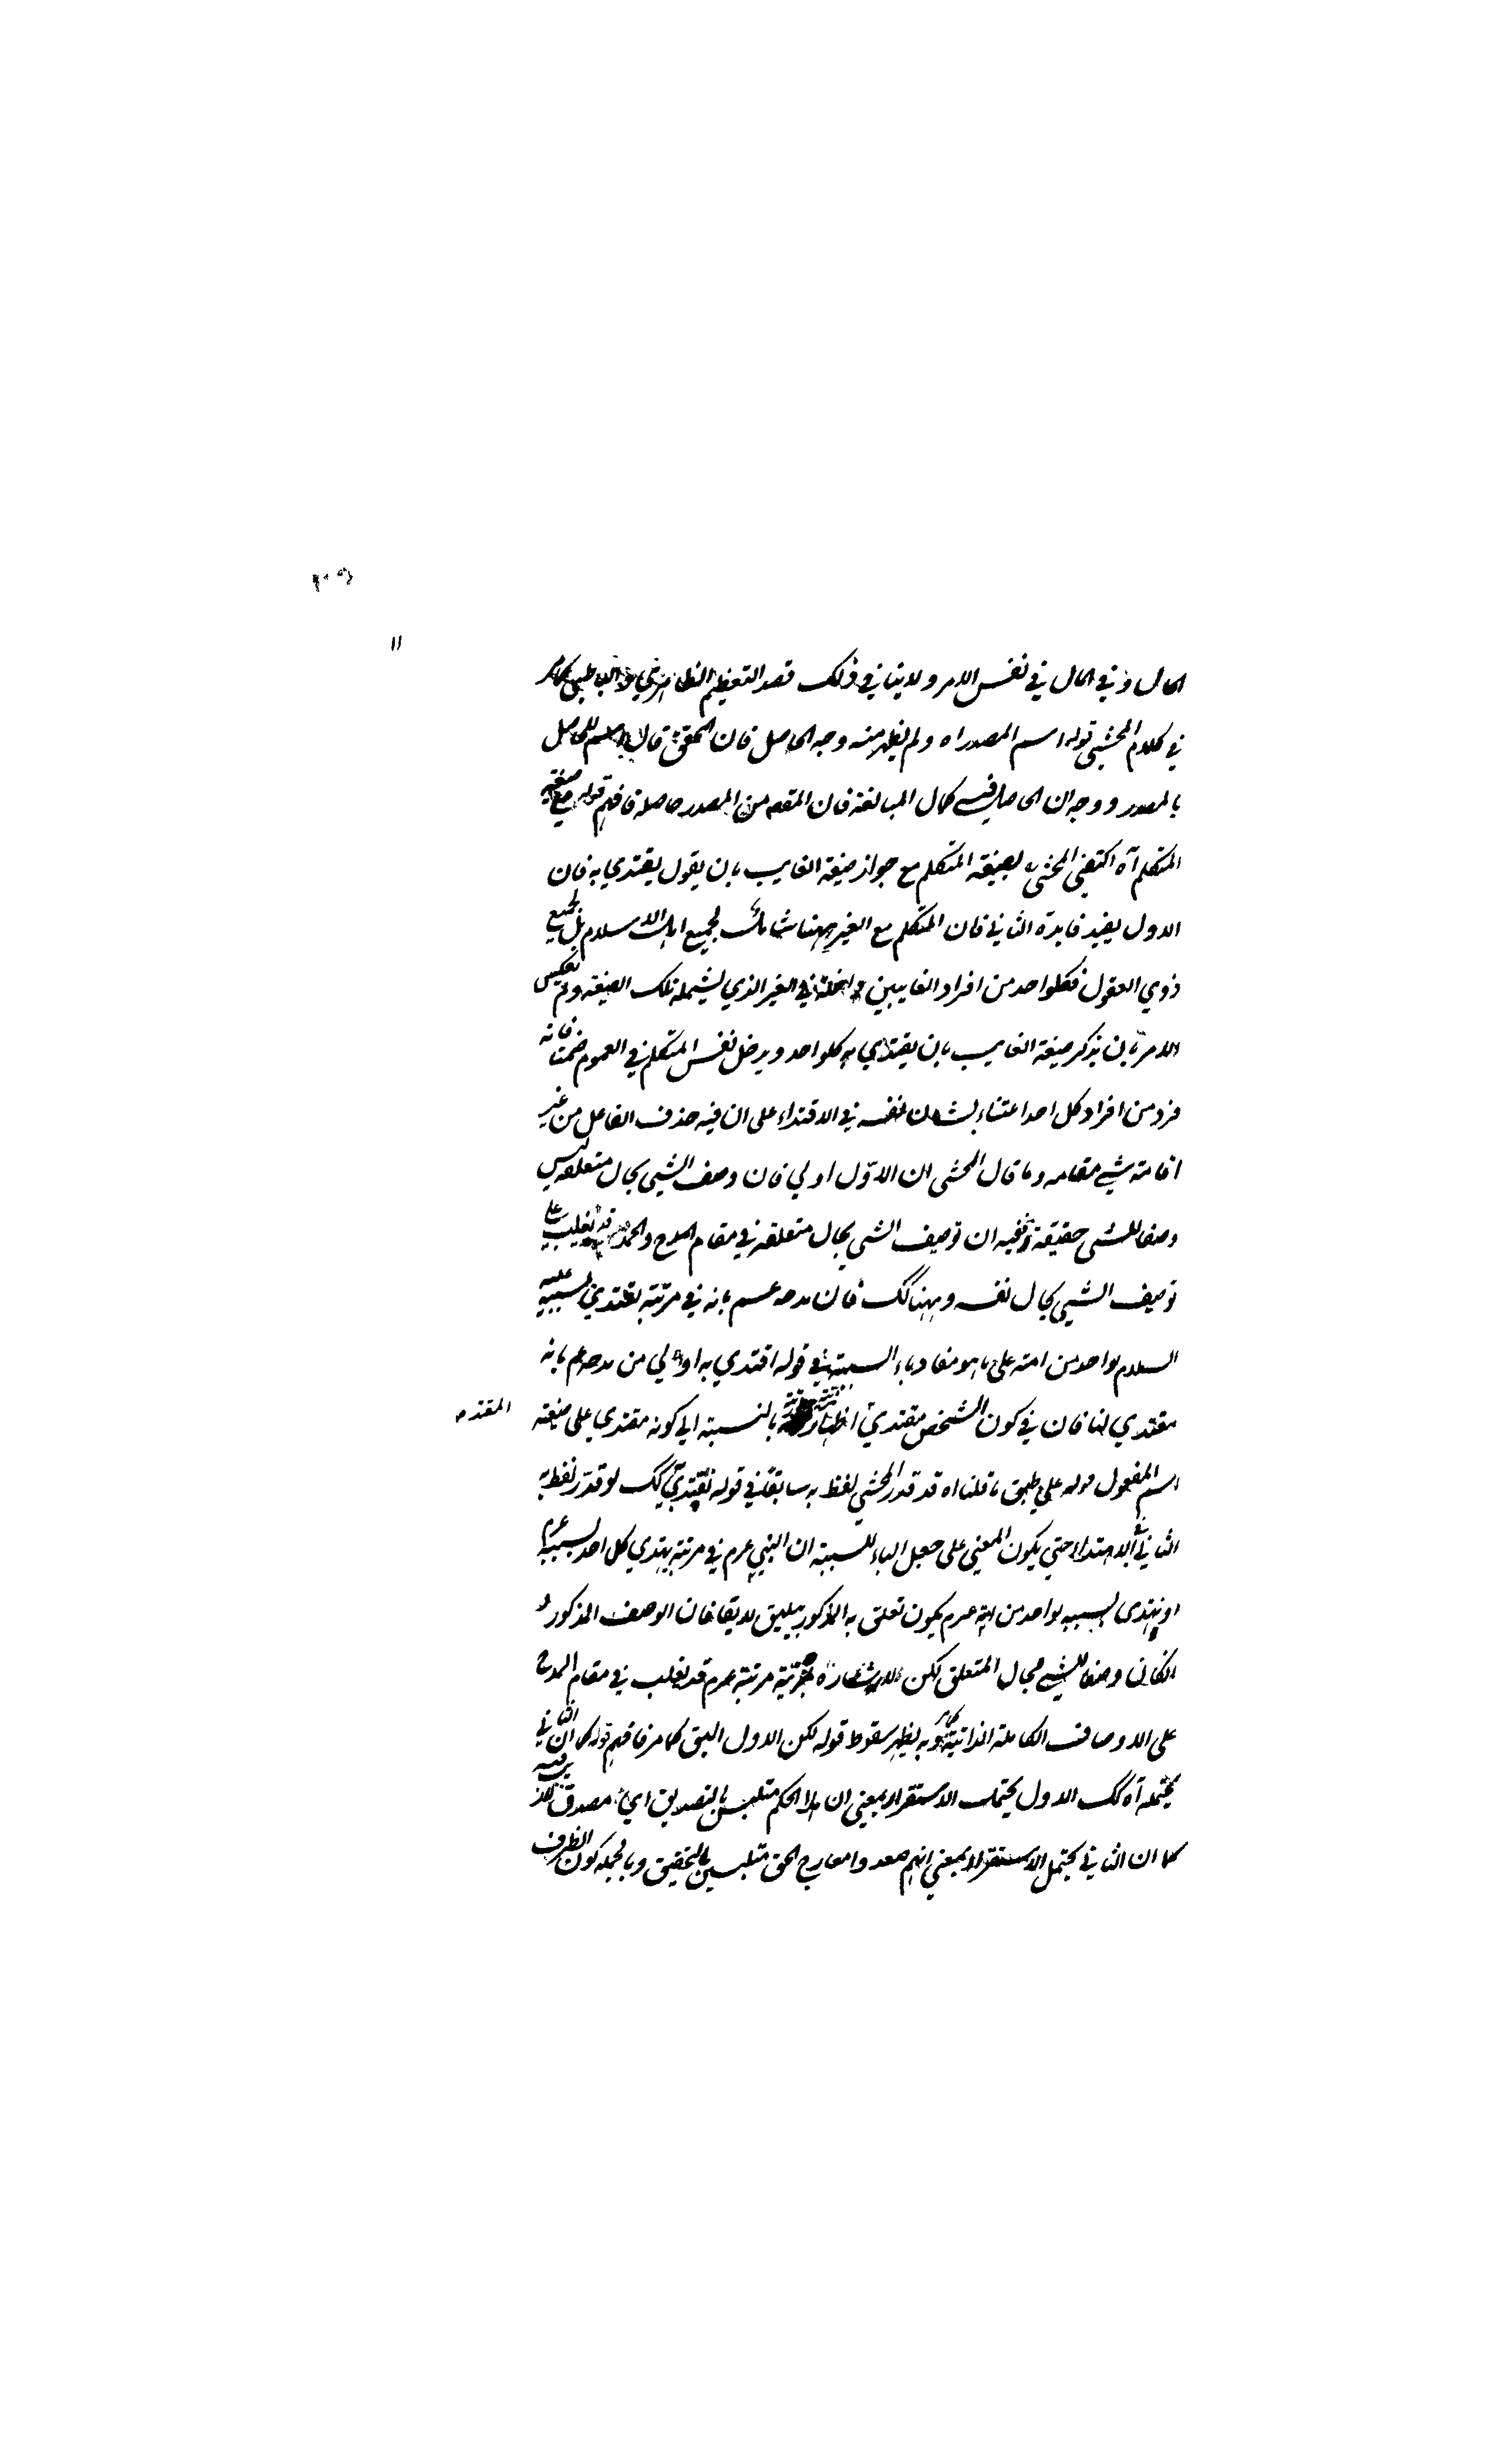 ١١
الحال وفي الحال في نفس الامر ولا ينافي ذلك قصد التعظيم الظاهري والباطني كما مر
في كلام المحشي قوله اسم المصدر اه ولم يظهر منه وجه الحاصل فان المحقق قال اسم للحاصل
بالمصدر ووجه ان الحاصل فيه كمال المبالغة فان المقصد من المصدر حاصله فافهم قوله صيغة
المتكلم آه اكتفى المحشي بصيغة المتكلم مع جواز صيغة الغايب بان يقول يقتدي به فان
الاول يفيد فايدة الثاني فان المتكلم مع الغير ههنا شامل لجميع اهل الاسلام بل لجميع
ذوي العقول فكلواحد من افراد الغايبين داخلة في الغير الذي يشمله تلك الصيغة ولم يعكس
الامر بان يذكر صيغة الغايب بان يقتدي به كلواحد ويدخل نفس المتكلم في العموم ضمنا فانه
فرد من افراد كل احد اعتناء بشان نفسه في الاقتداء على ان فيه حذف الفاعل من غير
اقامة شيء مقامه وما قال المحشي ان الاول اولي فان وصف الشيي بحال متعلقه ليس
وصفا للشيي حقيقة ففيه ان توصيف الشي بحال متعلقه في مقام المدح والحمد قد يغلب على
توصيف الشيي بحال نفسه وههنا كك فان مدحه عم بانه في مرتبة يقتدي بسببه عليه
السلام بواحد من امته على ما هو مفاد باء السببية في قوله اقتدي به اولي من مدحه عم بانه
مقتدي لنا فان في كون الشخص مقتدي بالنسبة الي كونه مقتدي على صيغة
المقتدم
اسم المفعول قوله على طبق ما قلنا اه قد قدر المحشي لفظ به سابقا في قوله نقتدي كك لو قدر لفظ به
الثاني في الاهتداء حتي يكون المعني على جعل الباء للسببية ان النبي عم في مرتبة يهتدي كل احد بسببه عم
او يهتدى بسببه بواحد من امته عم يكون تعلق به المذكور بيليق لا يقال فان الوصف المذكور و
انكان وصفا للشيي بحال المتعلق لكن مرتبة عم قد يغلب في مقام المدح
على الاوصاف الكاملة الذاتية وبه يظهر سقوط قوله لكن الاول اليق كما مر فافهم قوله كما ان الثاني
يحتمله آه كك الاول يحتمل الاستقرار بمعني ان هذا الحكم متلبس بالتصديق اي مصدق
كما ان الثاني يحتمل الاستقرار بمعني انهم صعدوا معارج الحق متلبسين بالتحقيق وبالجملة كون الظرف